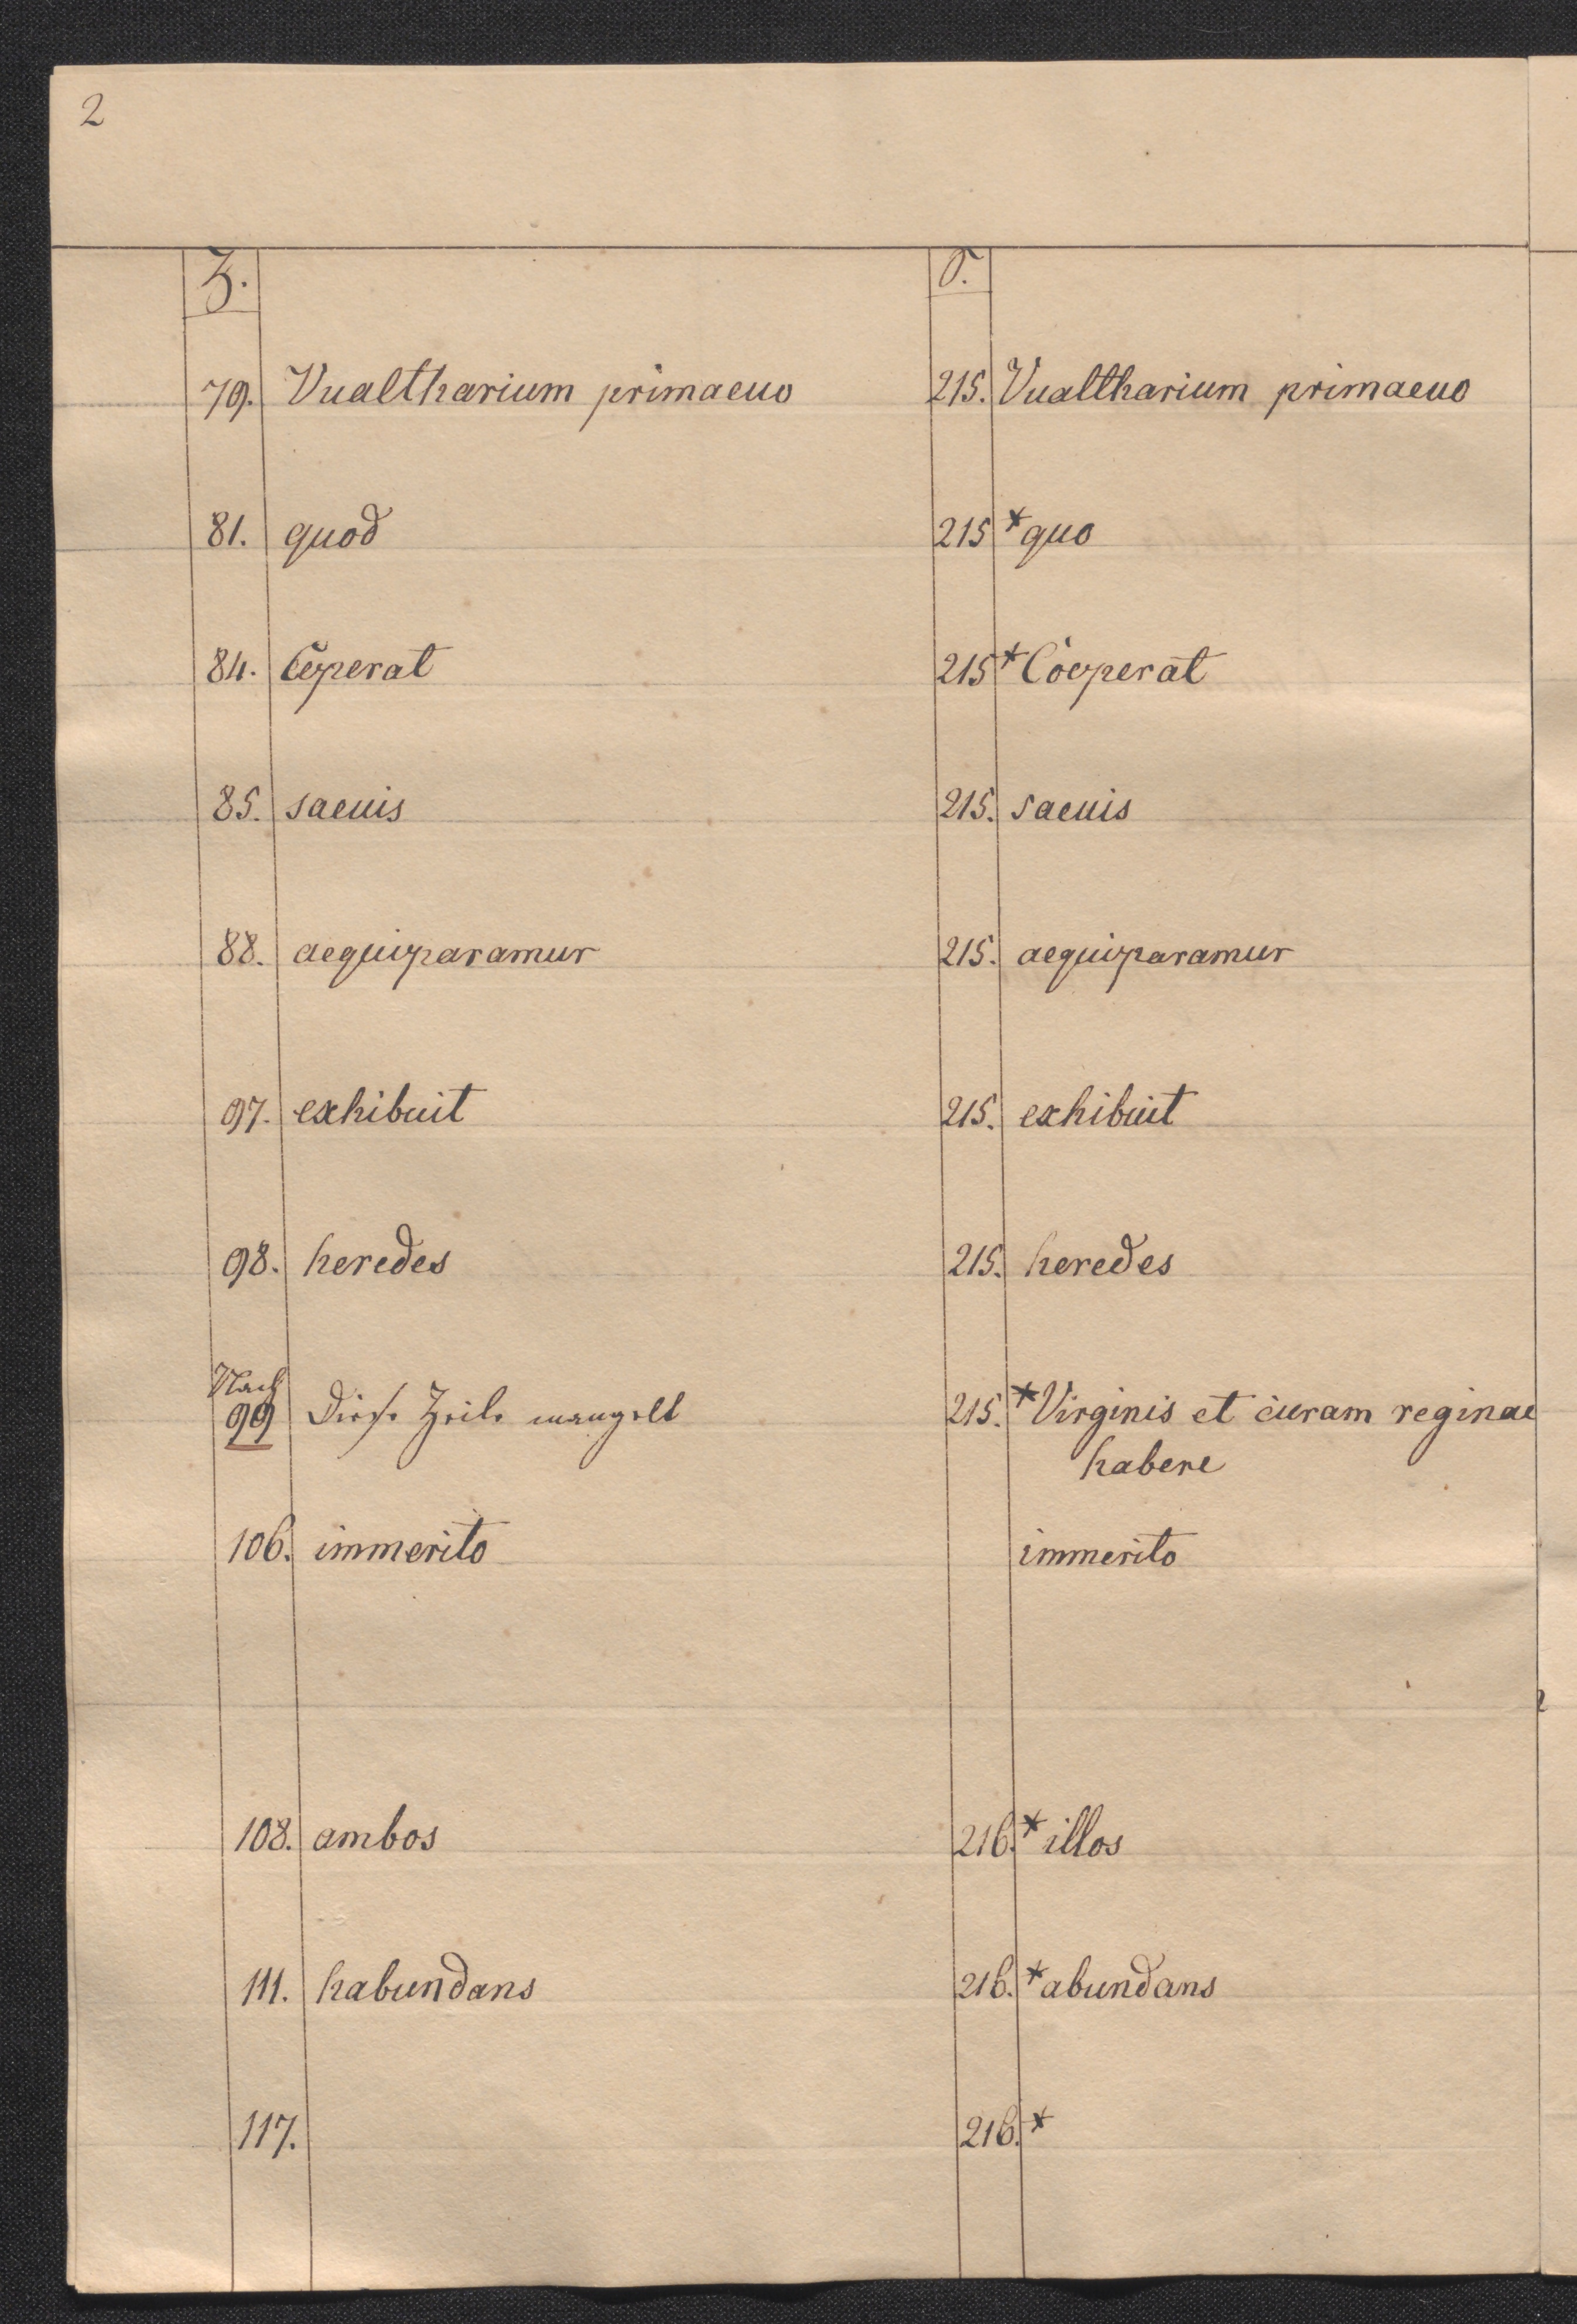 2
Z. S.
79. Vualtharium primaeuo 215. Vualtharium primaeuo
81. quod 215 *quo
84. Ceperat 215 *Coeperat
85. saeuis 215. saeuis
88. aequiparamur 215. aequiparamur
97. exhibuit 215. exhibuit
98. heredes 215. heredes
Nach
99 Diese Zeile mangelt 215. *Virginis et curam reginae
habere
106. immerito immerito
108. ambos 216. *illos
111. habundans 216. *abundans
117. 216. *